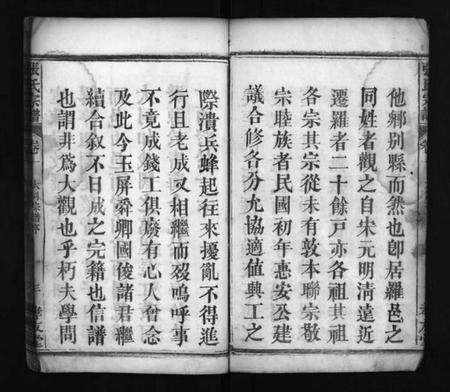 他鄉別縣而然也卽居羅邑之
同姓者觀之自宋元明清遠近
遷羅者二十餘戸亦各祖其祖
各宗其宗從未有敦本聯宗敬
宗睦族者民國初年惠安公建
議合修各分允協適值興工之
際潰兵蜂起往來擾亂不得進
行且老成又相繼而殁嗚呼事
不竟成錢工俱廢有心人奮念
及此今玉屏舜卿國俊諸君繼
續合叙不日成之完籍也信譜
也謂非爲大觀也乎朽夫學問
張氏宗譜
卷